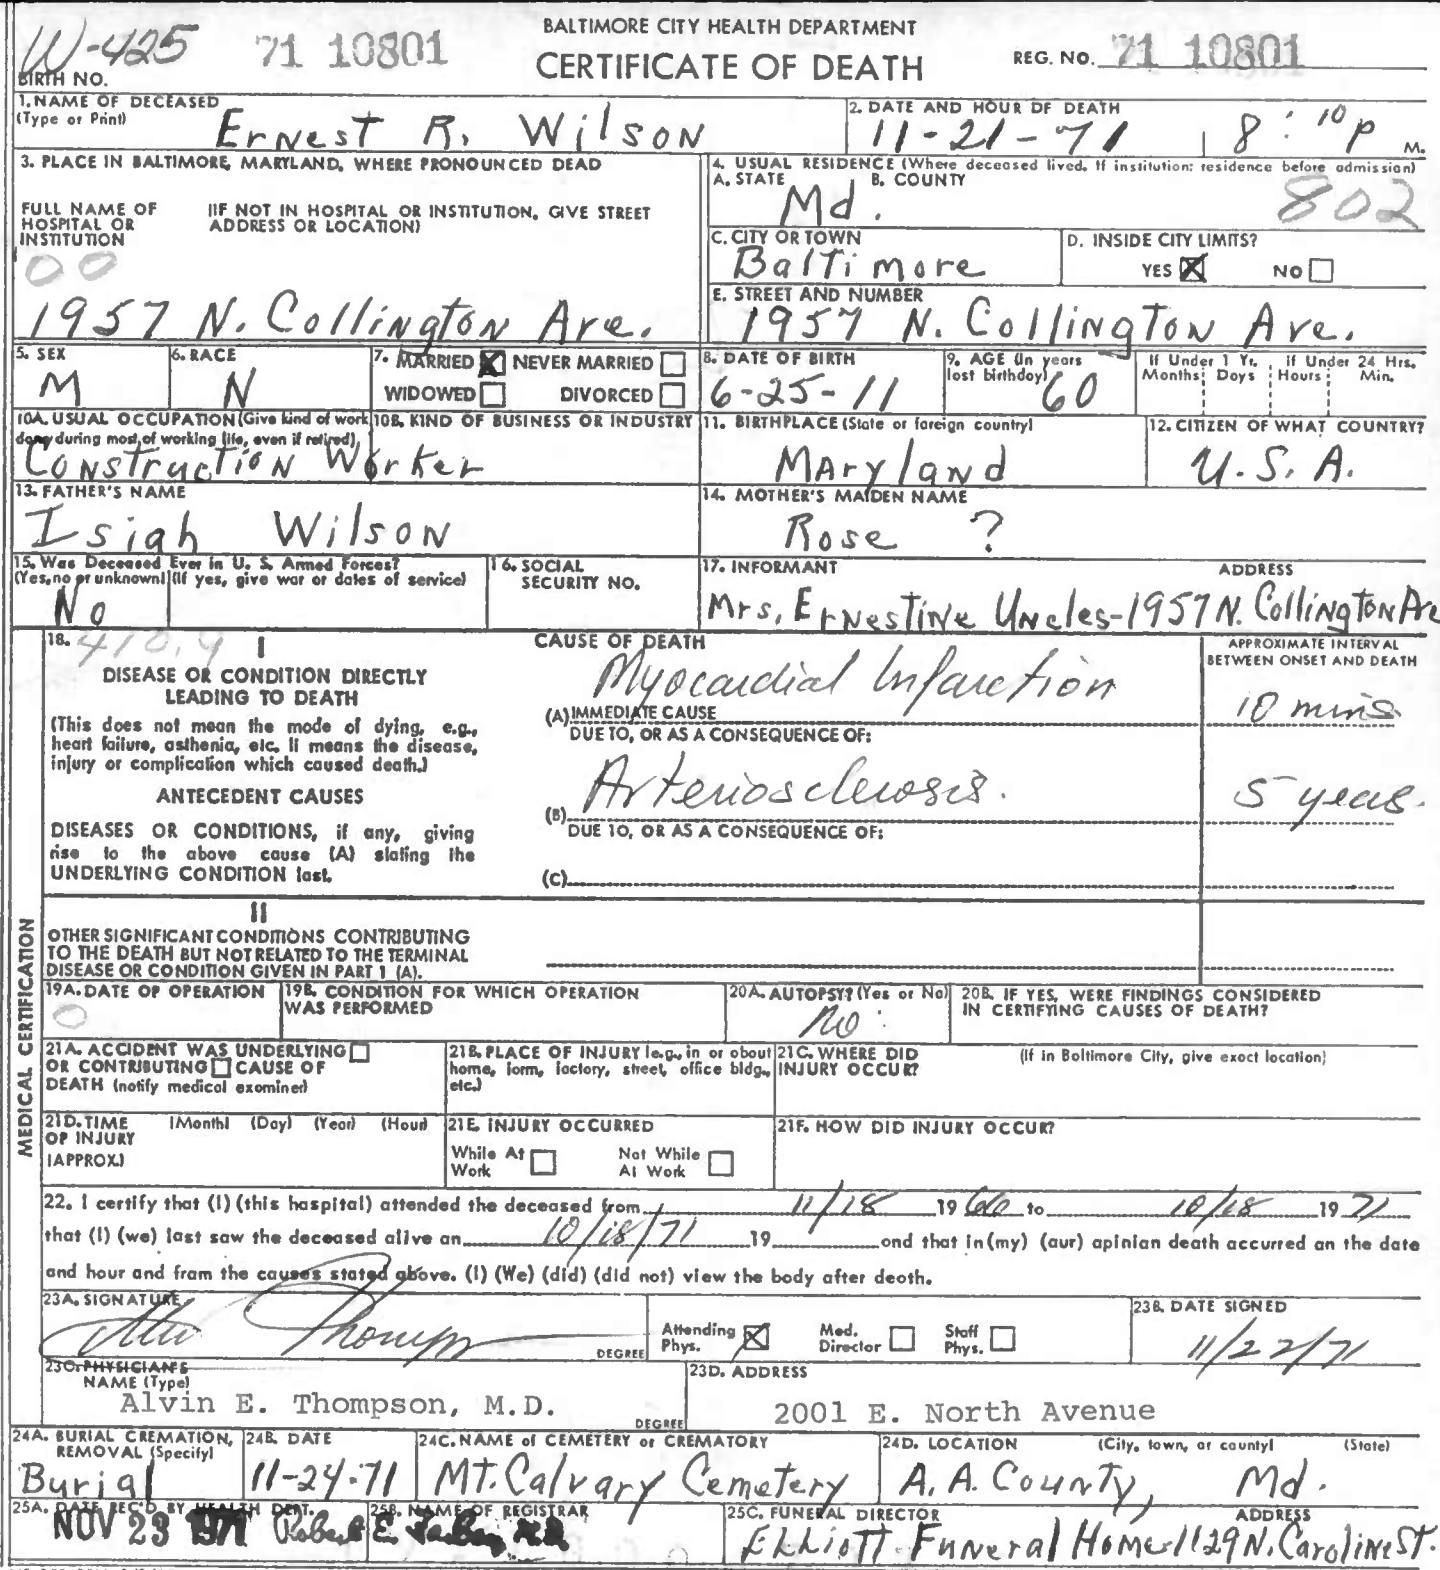 BALTIMORE CITY HEALTH DEPARTMENT
W-425 71 10801 CERTIFICATE OF DEATH REG. NO. 71 10801
BIRTH NO.
1. NAME OF DECEASED (Type or Print) Ernest R. Wilson
2. DATE AND HOUR OF DEATH 11-21-71 8:10 P M.
3. PLACE IN BALTIMORE, MARYLAND, WHERE PRONOUNCED DEAD
FULL NAME OF HOSPITAL OR INSTITUTION (IF NOT IN HOSPITAL OR INSTITUTION, GIVE STREET ADDRESS OR LOCATION)
00
1957 N. Collington Ave.
4. USUAL RESIDENCE (Where deceased lived. If institution: residence before admission)
A. STATE Md. B. COUNTY 802
C. CITY OR TOWN Baltimore
D. INSIDE CITY LIMITS? YES NO
E. STREET AND NUMBER 1957 N. Collington Ave.
5. SEX M
6. RACE N
7. MARRIED NEVER MARRIED
WIDOWED DIVORCED
8. DATE OF BIRTH 6-25-11
9. AGE (In years last birthday) 60
If Under 1 Yr. Months Days If Under 24 Hrs. Hours Min.
10A. USUAL OCCUPATION (Give kind of work done during most of working life, even if retired) Construction Worker
10B. KIND OF BUSINESS OR INDUSTRY
11. BIRTHPLACE (State or foreign country) Maryland
12. CITIZEN OF WHAT COUNTRY? U.S.A.
13. FATHER'S NAME Isiah Wilson
14. MOTHER'S MAIDEN NAME Rose ?
15. Was Deceased Ever in U. S. Armed Forces?
(Yes, no or unknown) (If yes, give war or dates of service)
No
16. SOCIAL SECURITY NO.
17. INFORMANT ADDRESS
Mrs. Ernestine Uncles-1957 N. Collington Ave
MEDICAL CERTIFICATION
18. 410.9 I CAUSE OF DEATH
APPROXIMATE INTERVAL BETWEEN ONSET AND DEATH
DISEASE OR CONDITION DIRECTLY LEADING TO DEATH
(This does not mean the mode of dying, e.g., heart failure, asthenia, etc. It means the disease, injury or complication which caused death.)
Myocardial Infarction 10 mins
(A) IMMEDIATE CAUSE
DUE TO, OR AS A CONSEQUENCE OF:
ANTECEDENT CAUSES
DISEASES OR CONDITIONS, if any, giving rise to the above cause (A) stating the UNDERLYING CONDITION last.
Arteriosclerosis. 5 years.
(B)
DUE TO, OR AS A CONSEQUENCE OF:
(C)
II
OTHER SIGNIFICANT CONDITIONS CONTRIBUTING TO THE DEATH BUT NOT RELATED TO THE TERMINAL DISEASE OR CONDITION GIVEN IN PART 1 (A).
19A. DATE OF OPERATION 0
19B. CONDITION FOR WHICH OPERATION WAS PERFORMED
20A. AUTOPSY? (Yes or No) No
20B. IF YES, WERE FINDINGS CONSIDERED IN CERTIFYING CAUSES OF DEATH?
21A. ACCIDENT WAS UNDERLYING OR CONTRIBUTING CAUSE OF DEATH (notify medical examiner)
21B. PLACE OF INJURY (e.g., in or about home, farm, factory, street, office bldg., etc.)
21C. WHERE DID INJURY OCCUR? (If in Baltimore City, give exact location)
21D. TIME OF INJURY (APPROX.) (Month) (Day) (Year) (Hour)
21E. INJURY OCCURRED
While At Work Not While At Work
21F. HOW DID INJURY OCCUR?
22. I certify that (I) (this hospital) attended the deceased from 11/18 1966 to 10/18 1971
that (I) (we) last saw the deceased alive on 10/18/71 19 and that in (my) (our) opinion death occurred on the date
and hour and from the causes stated above. (I) (We) (did) (did not) view the body after death.
23A. SIGNATURE Thompson DEGREE
Attending Phys. Med. Director Staff Phys.
23B. DATE SIGNED 11/22/71
23C. PHYSICIAN'S NAME (Type) Alvin E. Thompson, M.D. DEGREE
23D. ADDRESS 2001 E. North Avenue
24A. BURIAL CREMATION, REMOVAL (Specify) Burial
24B. DATE 11-24-71
24C. NAME of CEMETERY or CREMATORY Mt. Calvary Cemetery
24D. LOCATION (City, town, or county) (State) A.A. County, Md.
25A. DATE REC'D BY HEALTH DEPT. NOV 23 1971
25B. NAME OF REGISTRAR Robert E. Farber, M.D.
25C. FUNERAL DIRECTOR ADDRESS
Elliott Funeral Home-1129 N. Caroline St.